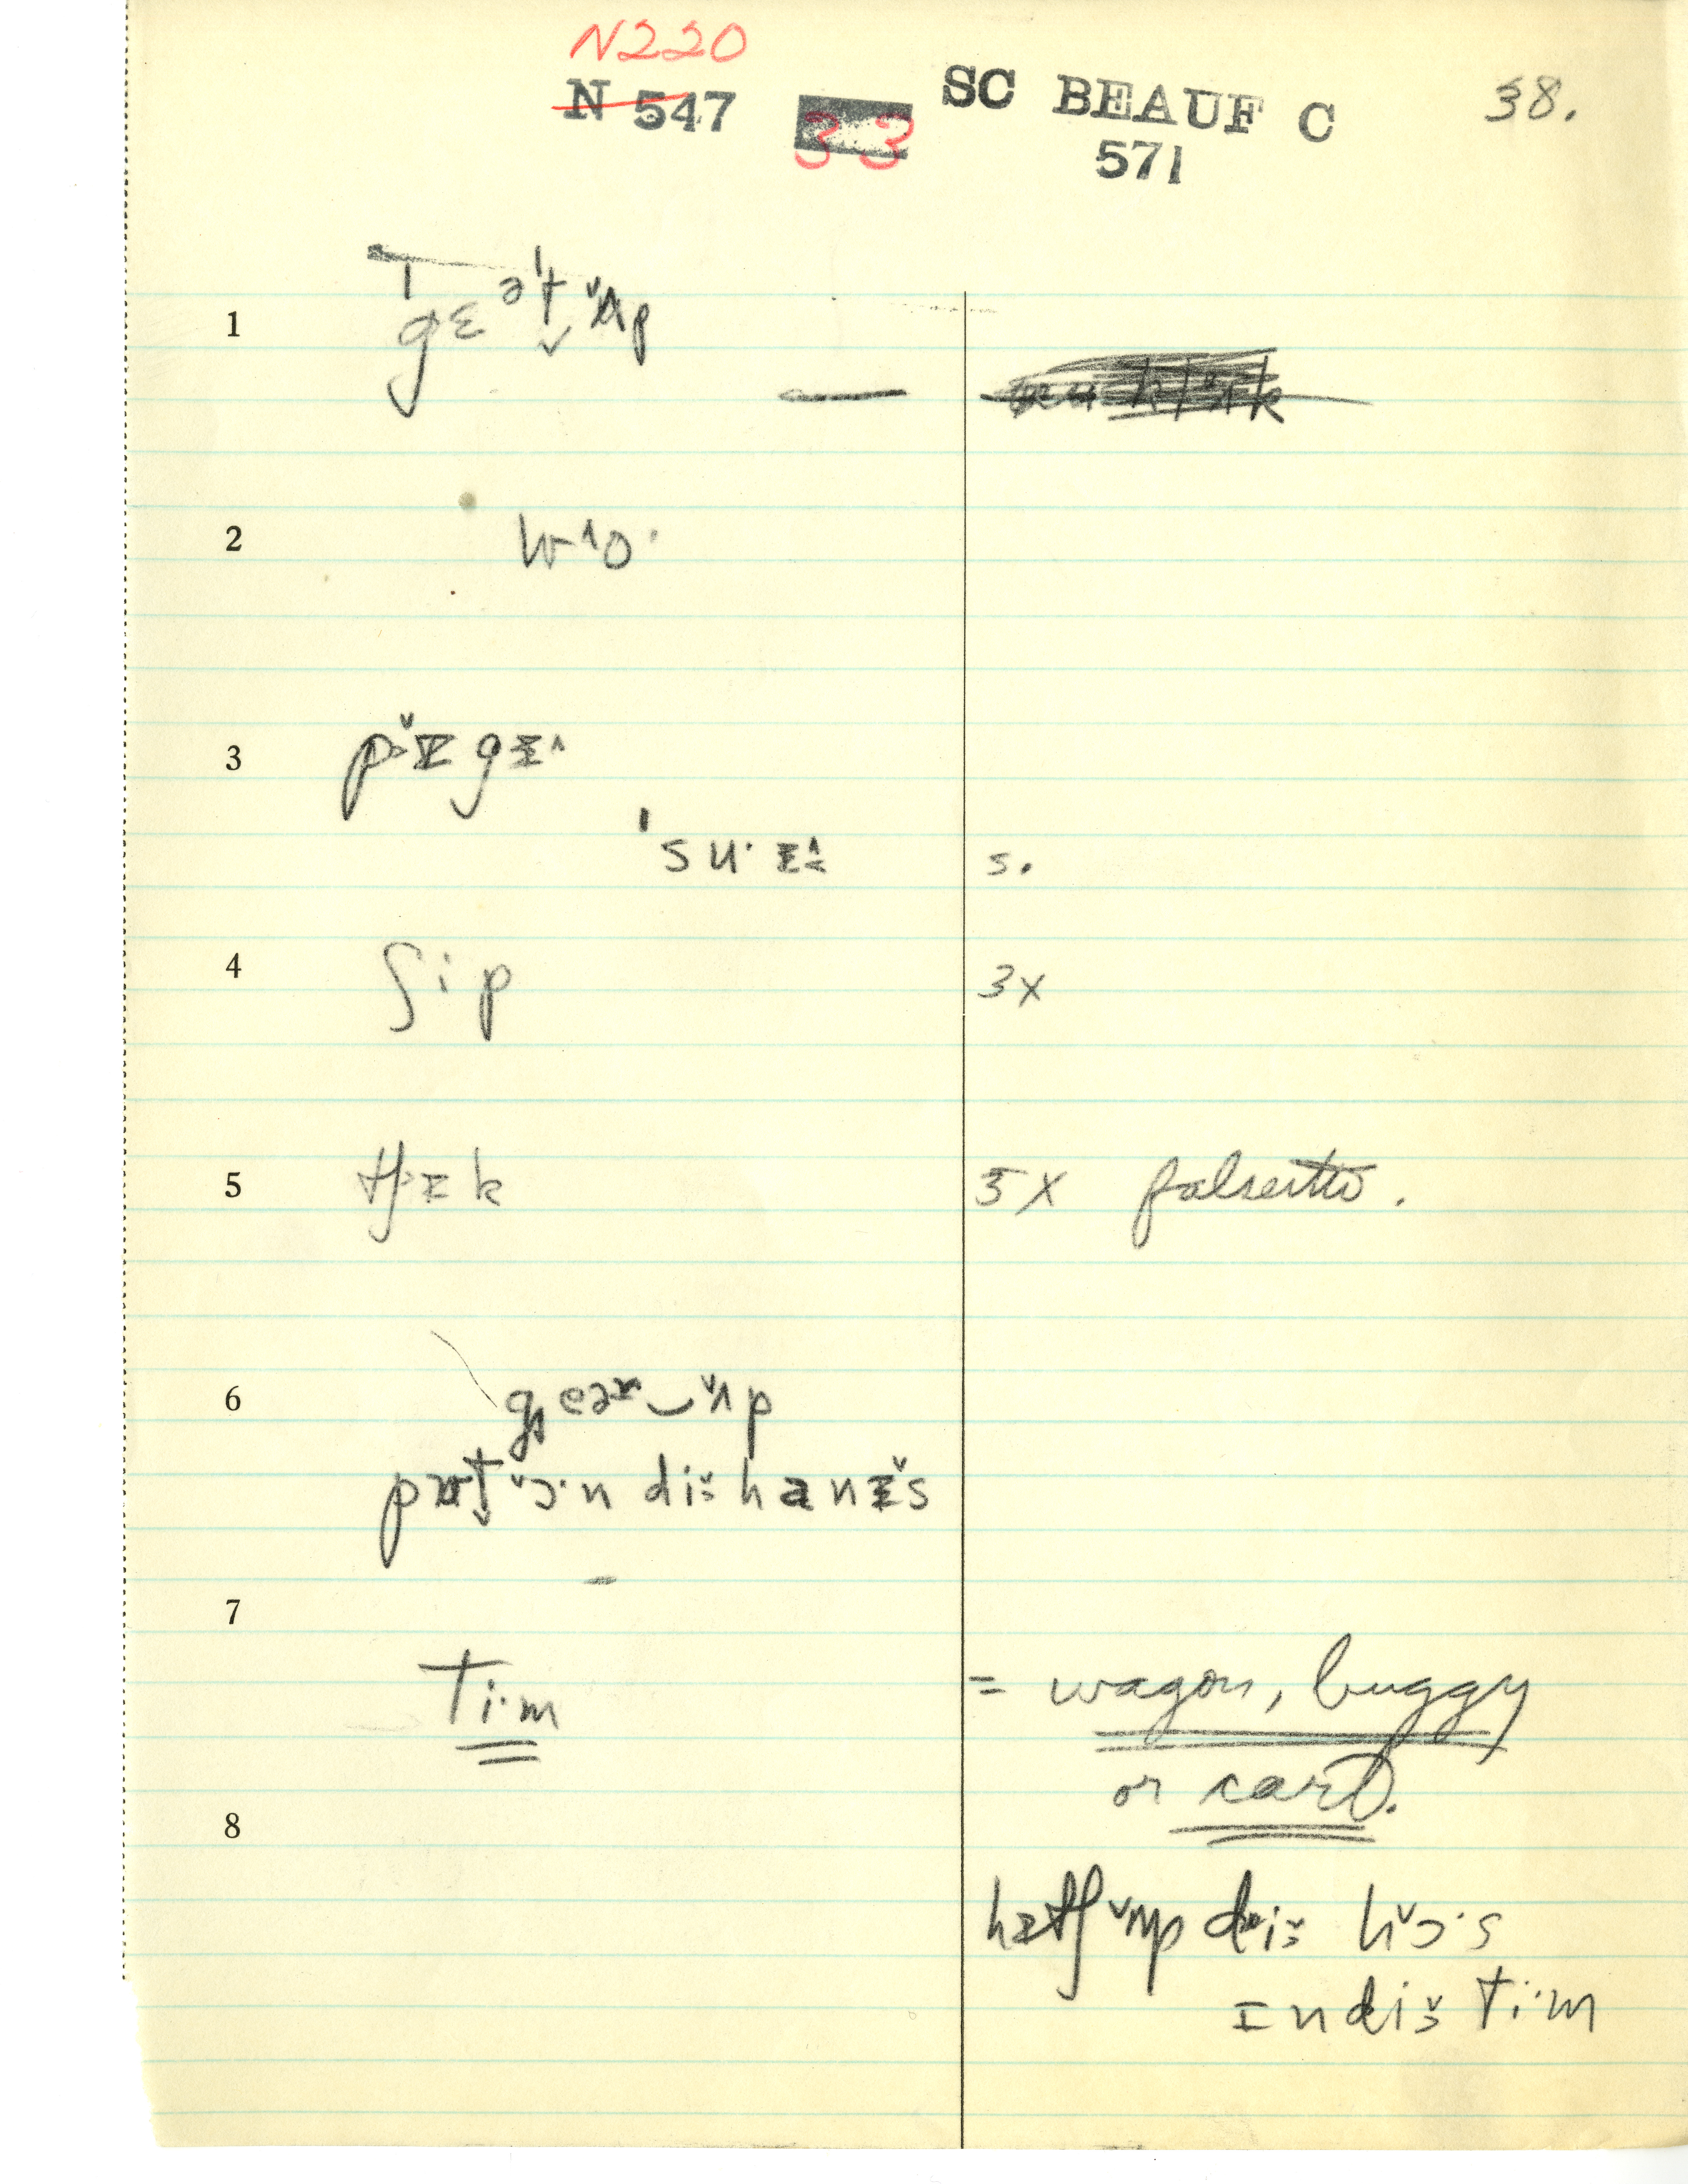 N220
N 547 33 SC BEAUF C 38.
571
1 ˈgɛəˈt̬ ʌ̌p
2 wˆo·
3 pɪ̌gɪˆ
ˈsu·ɪˆ s.
4 ʃip 3x
5 tʃɪk 5x falsetto.
6 geər‿ʌ̌p
pʊt̬ ɔ̌·n di hanɪ̌s
7
ti·m = wagon, buggy
or cart.
8
hɪtʃ ʌ̌p di hɔ̌·s
ɪn di ti·m